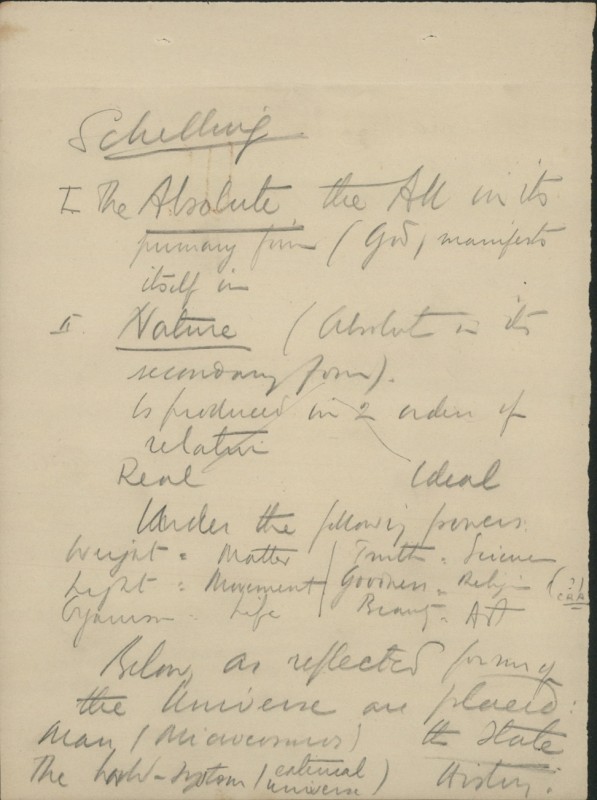 Schelling
I The Absolute the All in its
primary form (God) manifests
itself in
II. Nature (Absolut in its
secondary form).
Is produced in 2 orders of
relativ
Real Ideal
Under the following powers:
Weight = Matter Truth = Science
Light = Movement Goodness = Religion (?)
= Life Beauty = Art
Below, as reflected forms of
the Universe are placed:
Man (Microcosmos) the State
The - system (external universe) History.